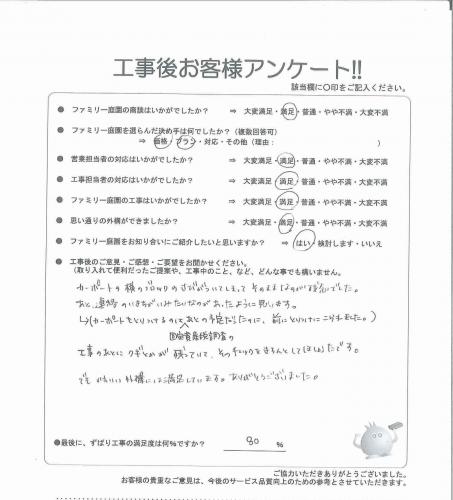 工事後お客様アンケート!!
該当欄に〇印をご記入ください。
● ファミリー庭園の商談はいかがでしたか？ ⇒ 大変満足・満足・普通・やや不満・大変不満
● ファミリー庭園を選らんだ決め手は何でしたか？（複数回答可）
⇒ 価格・プラン・対応・その他（理由： ）
● 営業担当者の対応はいかがでしたか？ ⇒ 大変満足・満足・普通・やや不満・大変不満
● 工事担当者の対応はいかがでしたか？ ⇒ 大変満足・満足・普通・やや不満・大変不満
● ファミリー庭園の工事はいかがでしたか？ ⇒ 大変満足・満足・普通・やや不満・大変不満
● 思い通りの外構ができましたか？ ⇒ 大変満足・満足・普通・やや不満・大変不満
● ファミリー庭園をお知り合いにご紹介したいと思いますか？ ⇒ はい・検討します・いいえ
● 工事後のご意見・ご感想・ご要望をお聞かせください。
（取り入れて便利だったご提案や、工事中のこと、など、どんな事でも構いません。
カーポートの横のブロックの
あと、連絡の
固定資産税調査の
工事のあとにクギとかが残っていて、
でも かわいい外構には満足しています。ありがとうございました。
●最後に、ずばり工事の満足度は何%ですか？ 80 %
ご協力いただきありがとうございました。
お客様の貴重なご意見は、今後のサービス品質向上のための参考とさせていただきます。